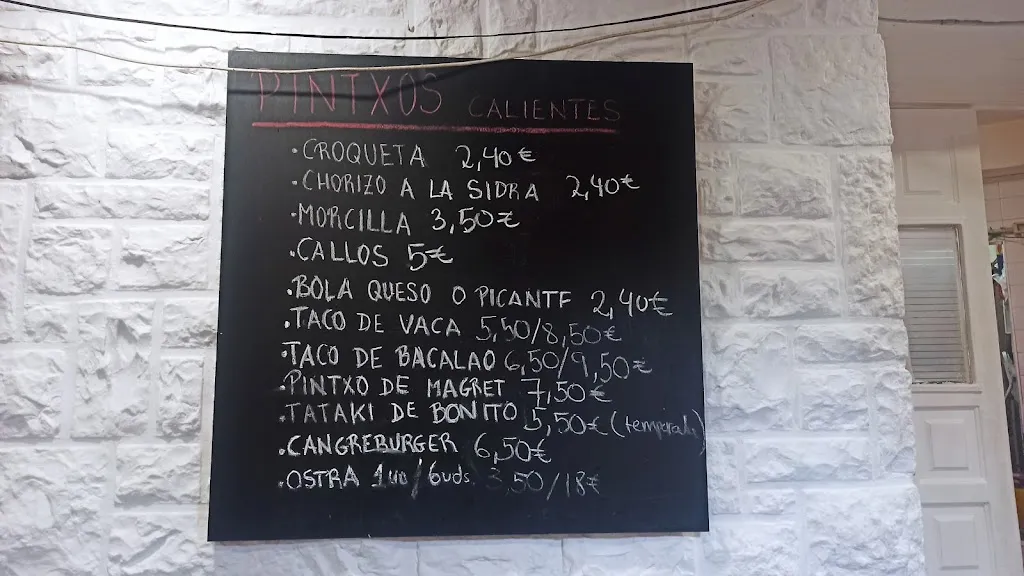 PINTXOS CALIENTES
·CROQUETA 2,40€
·CHORIZO A LA SIDRA 2,40€
·MORCILLA 3,50€
·CALLOS 5€
·BOLA QUESO O PICANTE 2,40€
·TACO DE VACA 5,50/8,50€
·TACO DE BACALAO 6,50/9,50€
·PINTXO DE MAGRET 7,50€
·TATAKI DE BONITO 5,50€ (temporada)
·CANGREBURGER 6,50€
·OSTRA 1ud/6uds 3,50/18€